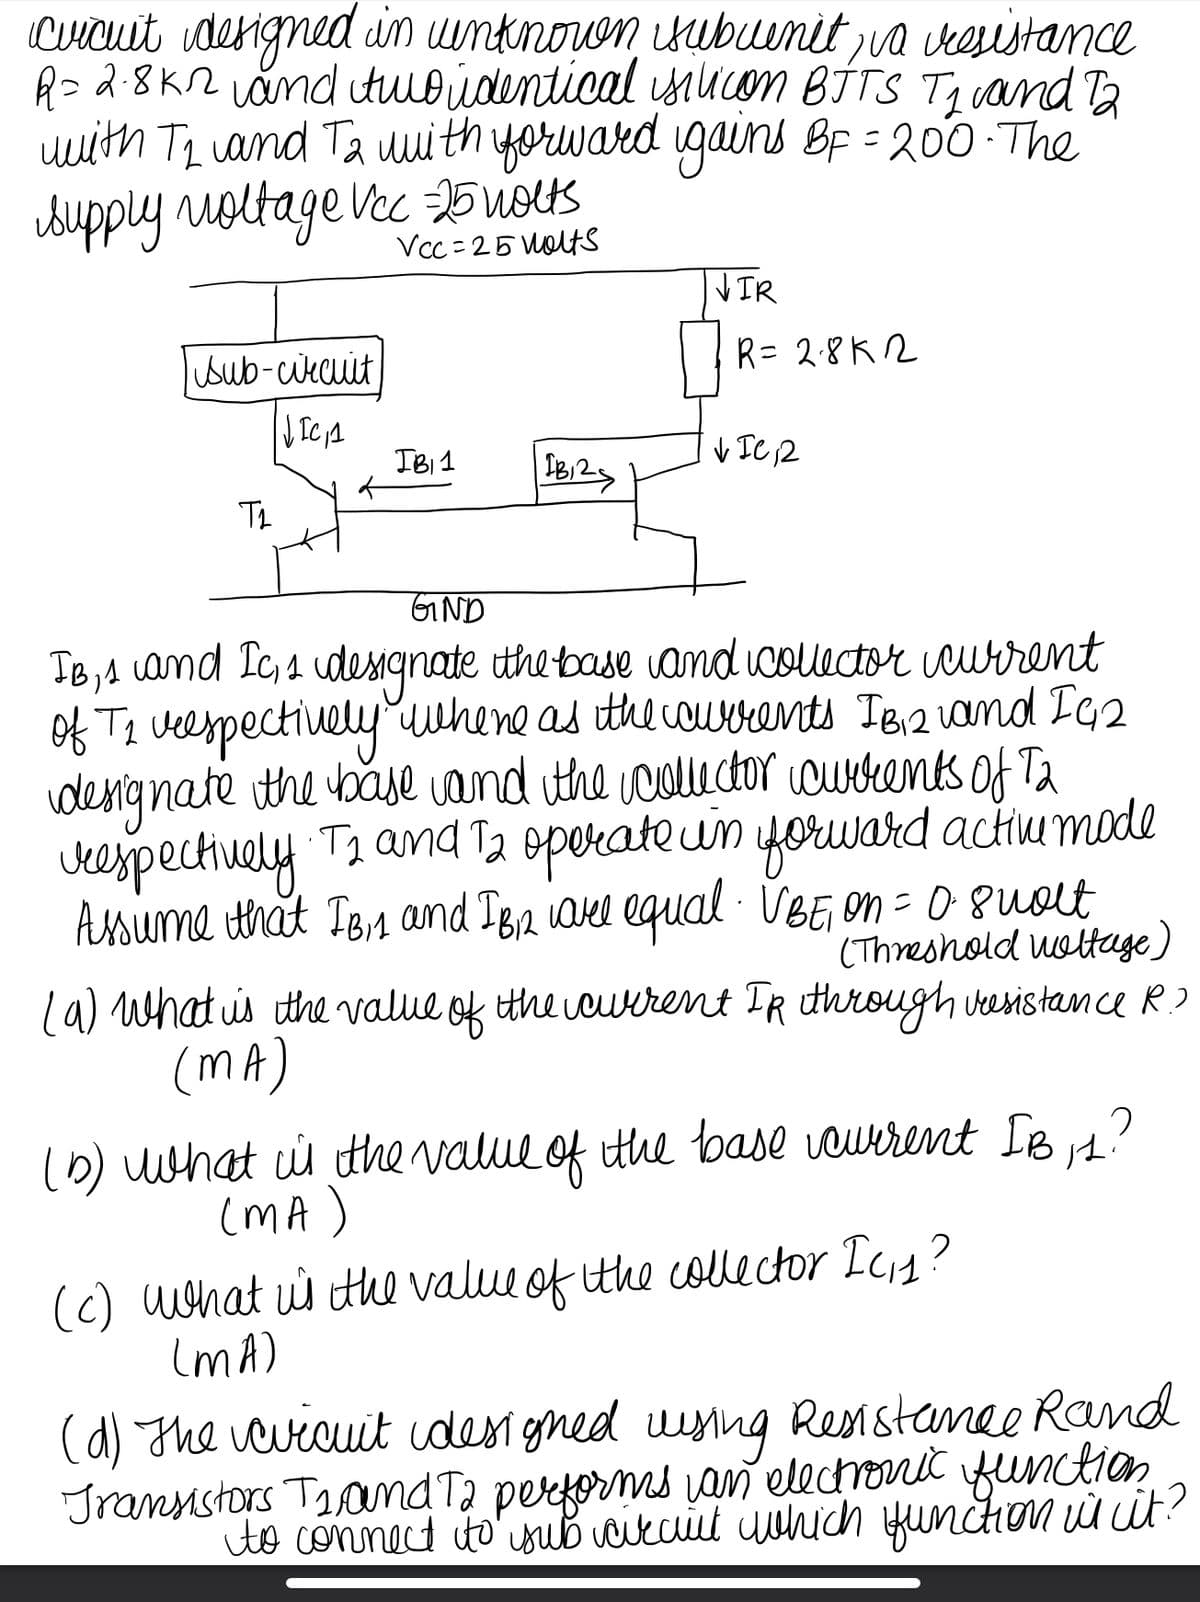 Circuit designed in unknown subunit, a resistance
R = 2.8KΩ and two identical silicon BJTS T1 and T2
with T1 and T2 with forward gains BF = 200. The
supply voltage Vcc = 25 volts
Vcc = 25 volts
↓ IR
R = 2.8KΩ
sub-circuit
↓ IC,1
IB,1
IB,2
↓ IC,2
T1
GND
IB,1 and IC,1 designate the base and collector current
of T1 respectively" where as the currents IB,2 and IC,2
designate the base and the collector currents of T2
respectively. T1 and T2 operate in forward active mode
Assume that IB,1 and IB,2 are equal. VBE, on = 0.8 volt
(Threshold voltage)
(a) What is the value of the current IR through resistance R?
(mA)
(b) what is the value of the base current IB,1?
(mA)
(c) what is the value of the collector IC,1?
(mA)
(d) The circuit designed using Resistance R and
Transistors T1 and T2 performs an electronic function
to connect to sub circuit which function is it?